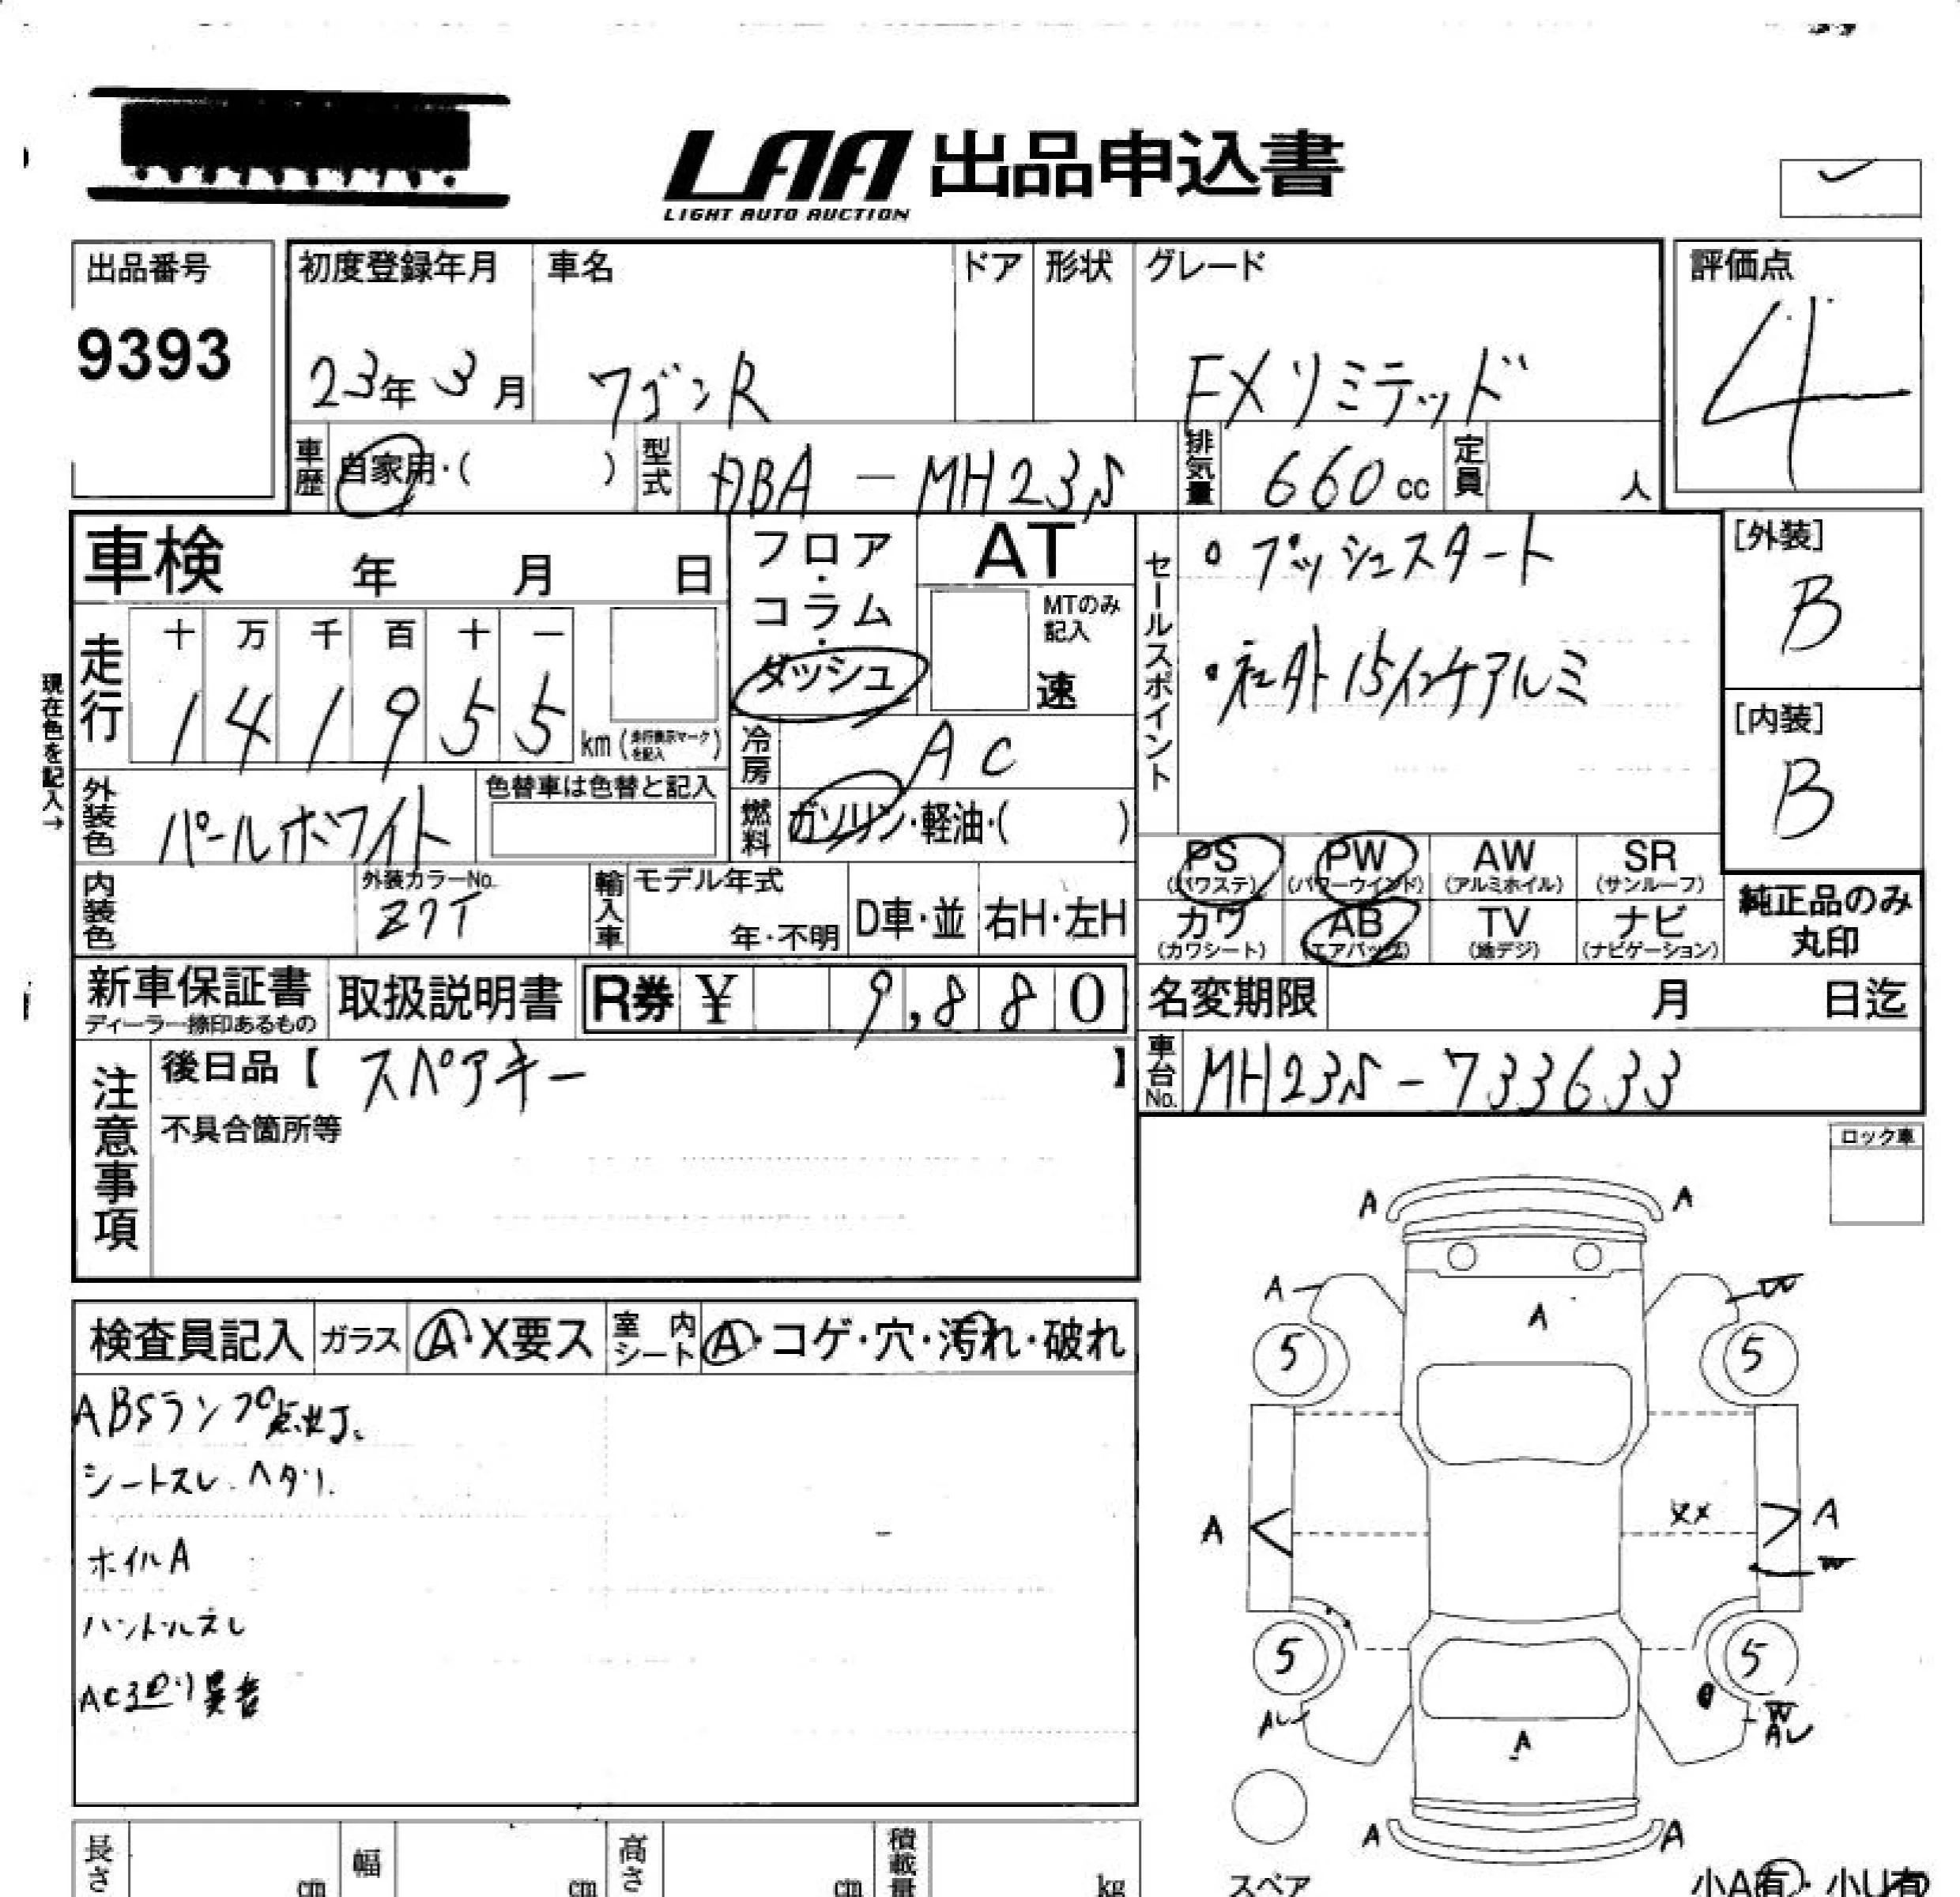 LAA 出品申込書
LIGHT AUTO AUCTION
出品番号
9393
初度登録年月
23年 3月
車名
ワゴンR
ドア
形状
グレード
FXリミテッド
評価点
4
車歴
自家用・( )
型式
DBA - MH23S
排気量
660 cc
定員
人
車検 年 月 日
フロア・コラム・ダッシュ
AT
MTのみ記入
速
セールスポイント
・プッシュスタート
・社外15インチアルミ
[外装]
B
[内装]
B
現在色を記入→
走行
十 万 千 百 十 一
1 4 1 9 5 5 km (走行表示マークを記入)
冷房
AC
外装色
パールホワイト
色替車は色替と記入
燃料
ガソリン・軽油・( )
PS (パワステ)
PW (パワーウインド)
AW (アルミホイル)
SR (サンルーフ)
カワ (カワシート)
AB (エアバッグ)
TV (地デジ)
ナビ (ナビゲーション)
純正品のみ丸印
内装色
外装カラーNo.
Z7T
輸入車
モデル年式
年・不明
D車・並
右H・左H
新車保証書
ディーラー捺印あるもの
取扱説明書
R券 ¥ 9,880
名変期限 月 日迄
車台No.
MH23S-733633
注意事項
後日品【 スペアキー 】
不具合箇所等
ロック車
検査員記入
ガラス
A・X要ス
室内シート
A・コゲ・穴・汚れ・破れ
ABSランプ点灯。
シートスレ.ヘタリ.
ホイルA
ハンドルスレ
AC廻り異音
A A
A W
A
5 5
A XX A
W
5 5
W
A
A A
スペア
小A有・小U有
長さ cm
幅 cm
高さ cm
積載量 kg